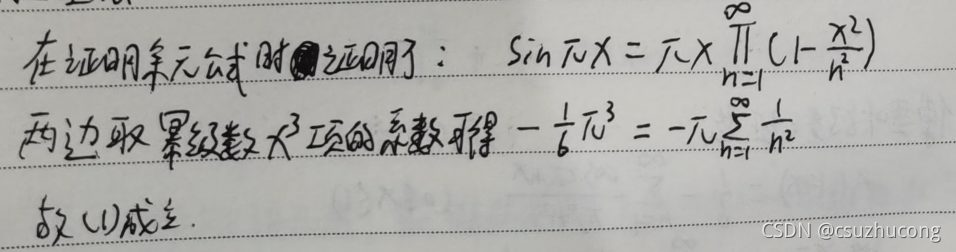 在证明余元公式时证明了: sin πx = πx ∏_{n=1}^{∞} (1 - x²/n²)
两边取幂级数 x³ 项的系数可得 - 1/6 π³ = -π ∑_{n=1}^{∞} 1/n²
故 (1) 成立.
CSDN @csuzhucong